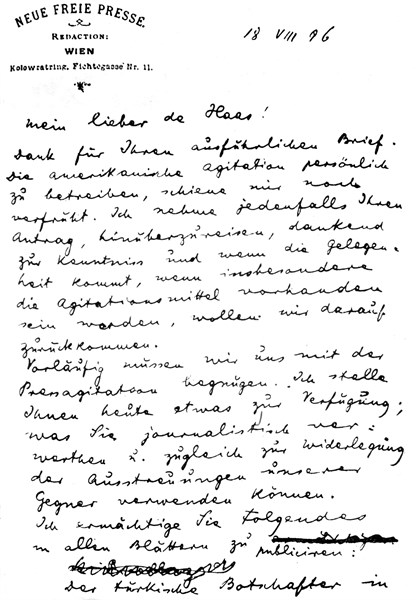 NEUE FREIE PRESSE.
REDACTION:
WIEN
Kolowratring, Fichtegasse Nr. 11.
18 VIII 96
Mein lieber de Haas!
Dank für Ihren ausführlichen Brief.
Die amerikanische Agitation persönlich
zu betreiben, schiene mir noch
verfrüht. Ich nehme jedenfalls Ihren
Antrag, hinüberzureisen, dankend
zur Kenntniss und wenn die Gelegen-
heit kommt, wenn insbesondere
die Agitationsmittel vorhanden
sein werden, wollen wir darauf
zurückkommen.
Vorläufig müssen wir uns mit der
Pressagitation begnügen. Ich stelle
Ihnen heute etwas zur Verfügung,
was Sie journalistisch ver-
werthen u. zugleich zur Widerlegung
der Ausstreuungen unserer
Gegner verwenden können.
Ich ermächtige Sie Folgendes
in allen Blättern zu publiciren:
Der türkische Botschafter in